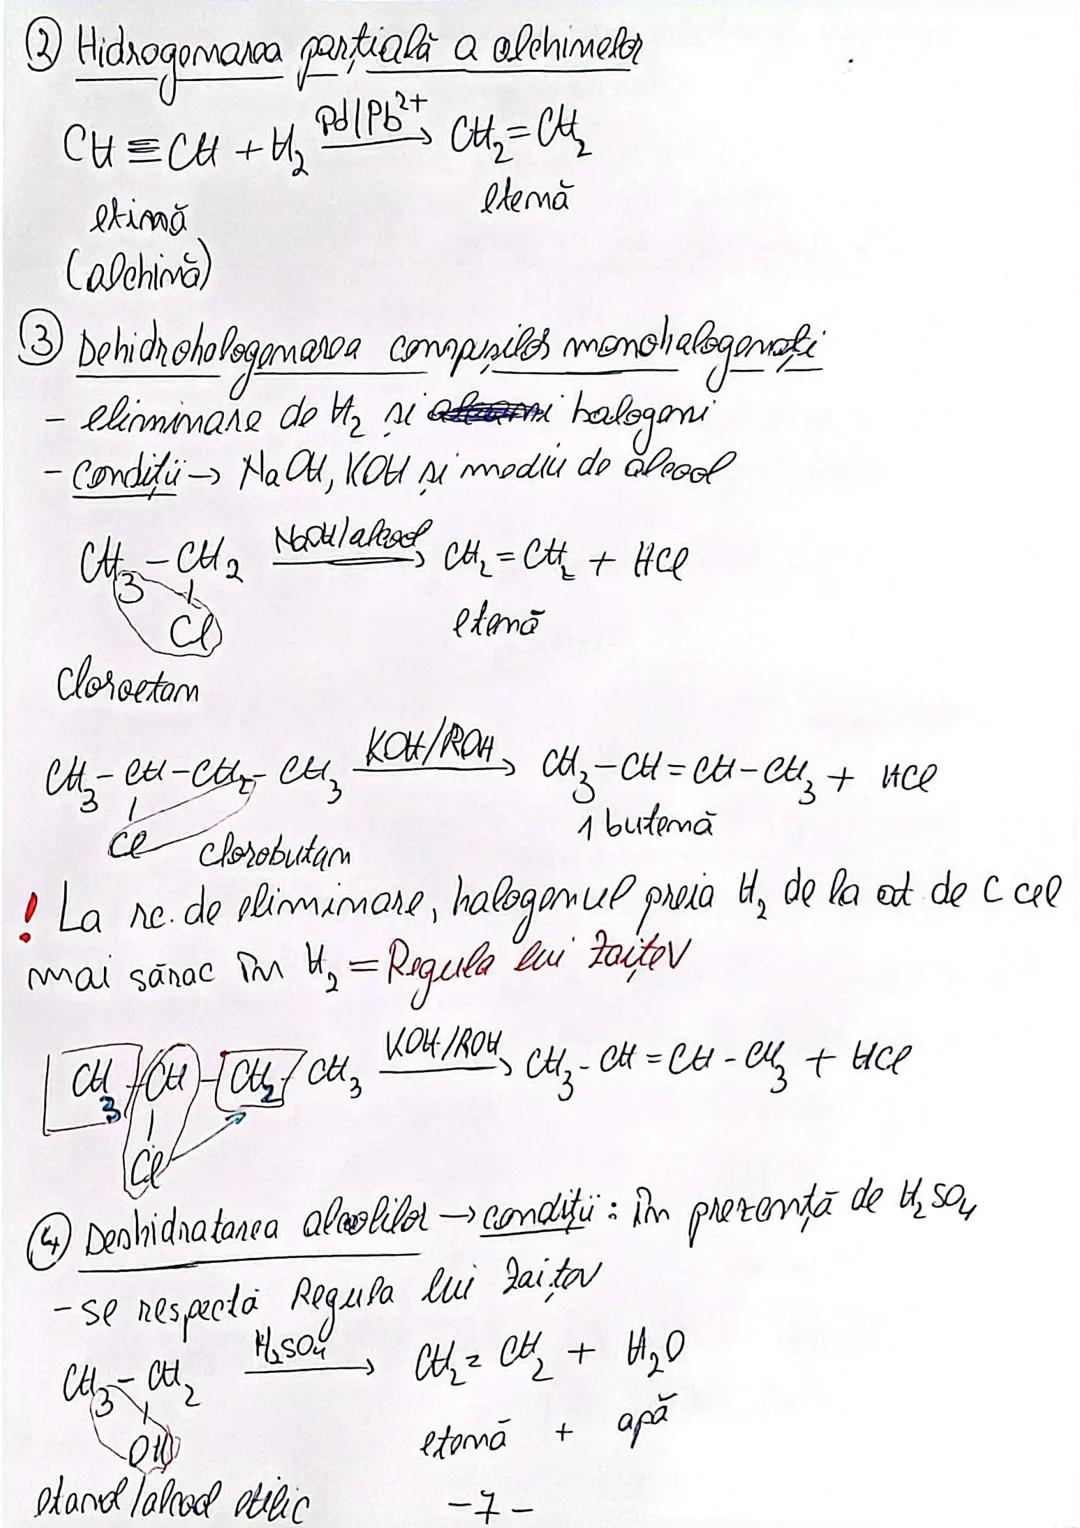 ② Hidrogenarea parțială a alchinelor
CH ≡ CH + H₂ —Pd/Pb²⁺→ CH₂ = CH₂
etină etenă
(alchină)
③ Dehidrohalogenarea compușilor monohalogenați
- eliminare de H₂ și halogeni
- condiții → NaOH, KOH și mediu de alcool
CH₃ - CH₂ —NaOH/alcool→ CH₂ = CH₂ + HCl
Cl etenă
Cloroetan
CH₃ - CH - CH₂ - CH₃ —KOH/ROH→ CH₃ - CH = CH - CH₃ + HCl
Cl clorobutan 1 butenă
! La rc. de eliminare, halogenul preia H₂ de la at. de C cel
mai sărac în H₂ = Regula lui Zaițev
CH₃ - CH - CH₂ - CH₃ —KOH/ROH→ CH₃ - CH = CH - CH₃ + HCl
Cl
④ Deshidratarea alcolilor → condiții : în prezență de H₂SO₄
- se respectă Regula lui Zaițev
CH₃ - CH₂ —H₂SO₄→ CH₂ = CH₂ + H₂O
OH etenă + apă
etanol / alcool etilic
- 7 -